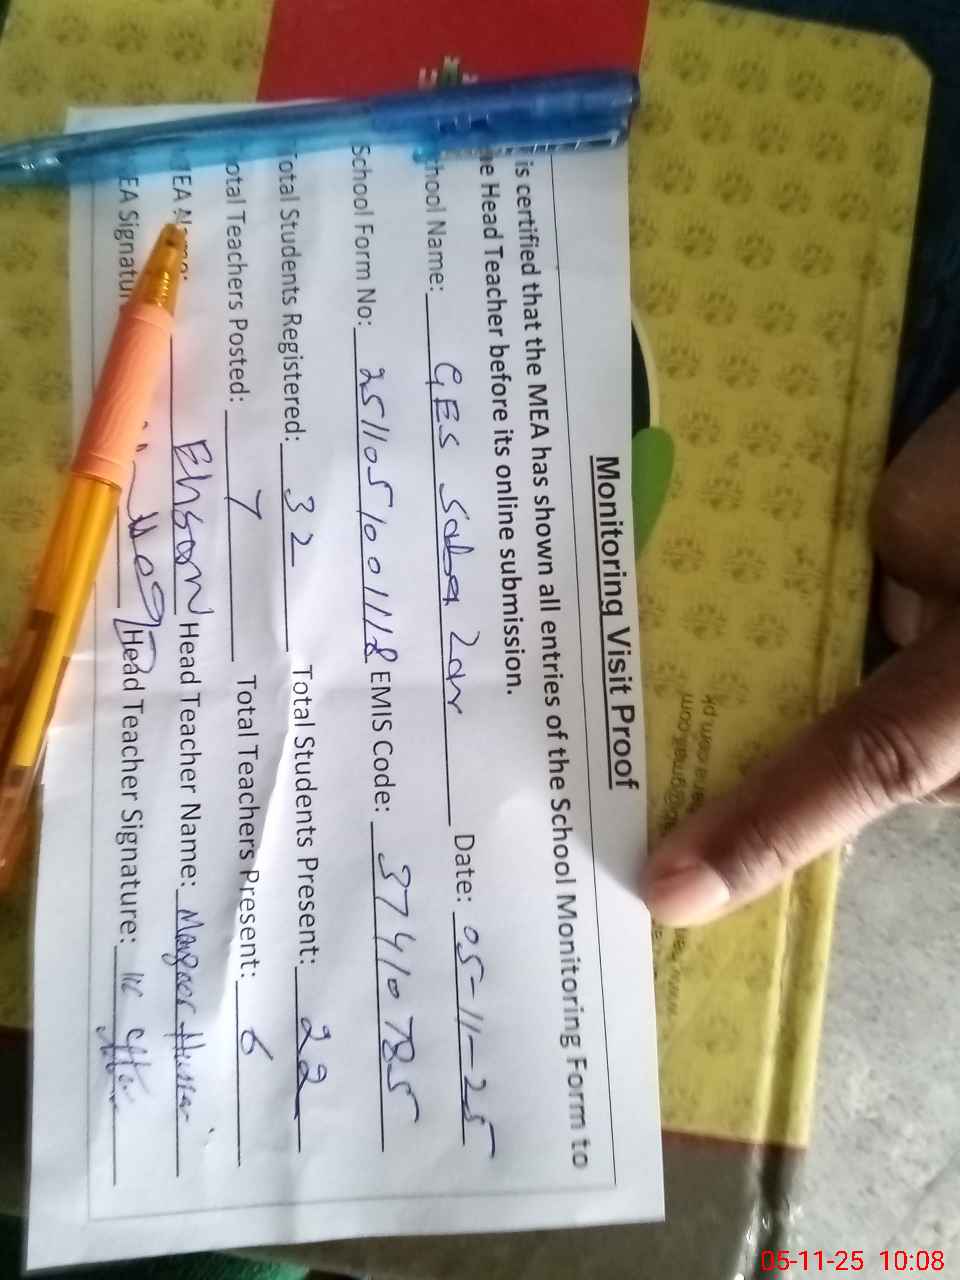 Monitoring Visit Proof
is certified that the MEA has shown all entries of the School Monitoring Form to
e Head Teacher before its online submission.
hool Name: GES Date: 05-11-25
School Form No: 2511051001118 EMIS Code: 37410785
Total Students Registered: 32 Total Students Present: 22
otal Teachers Posted: 7 Total Teachers Present: 6
MEA Name: Ehsan Head Teacher Name: Manzoor Hussain
EA Signatur Head Teacher Signature:
05-11-25 10:08